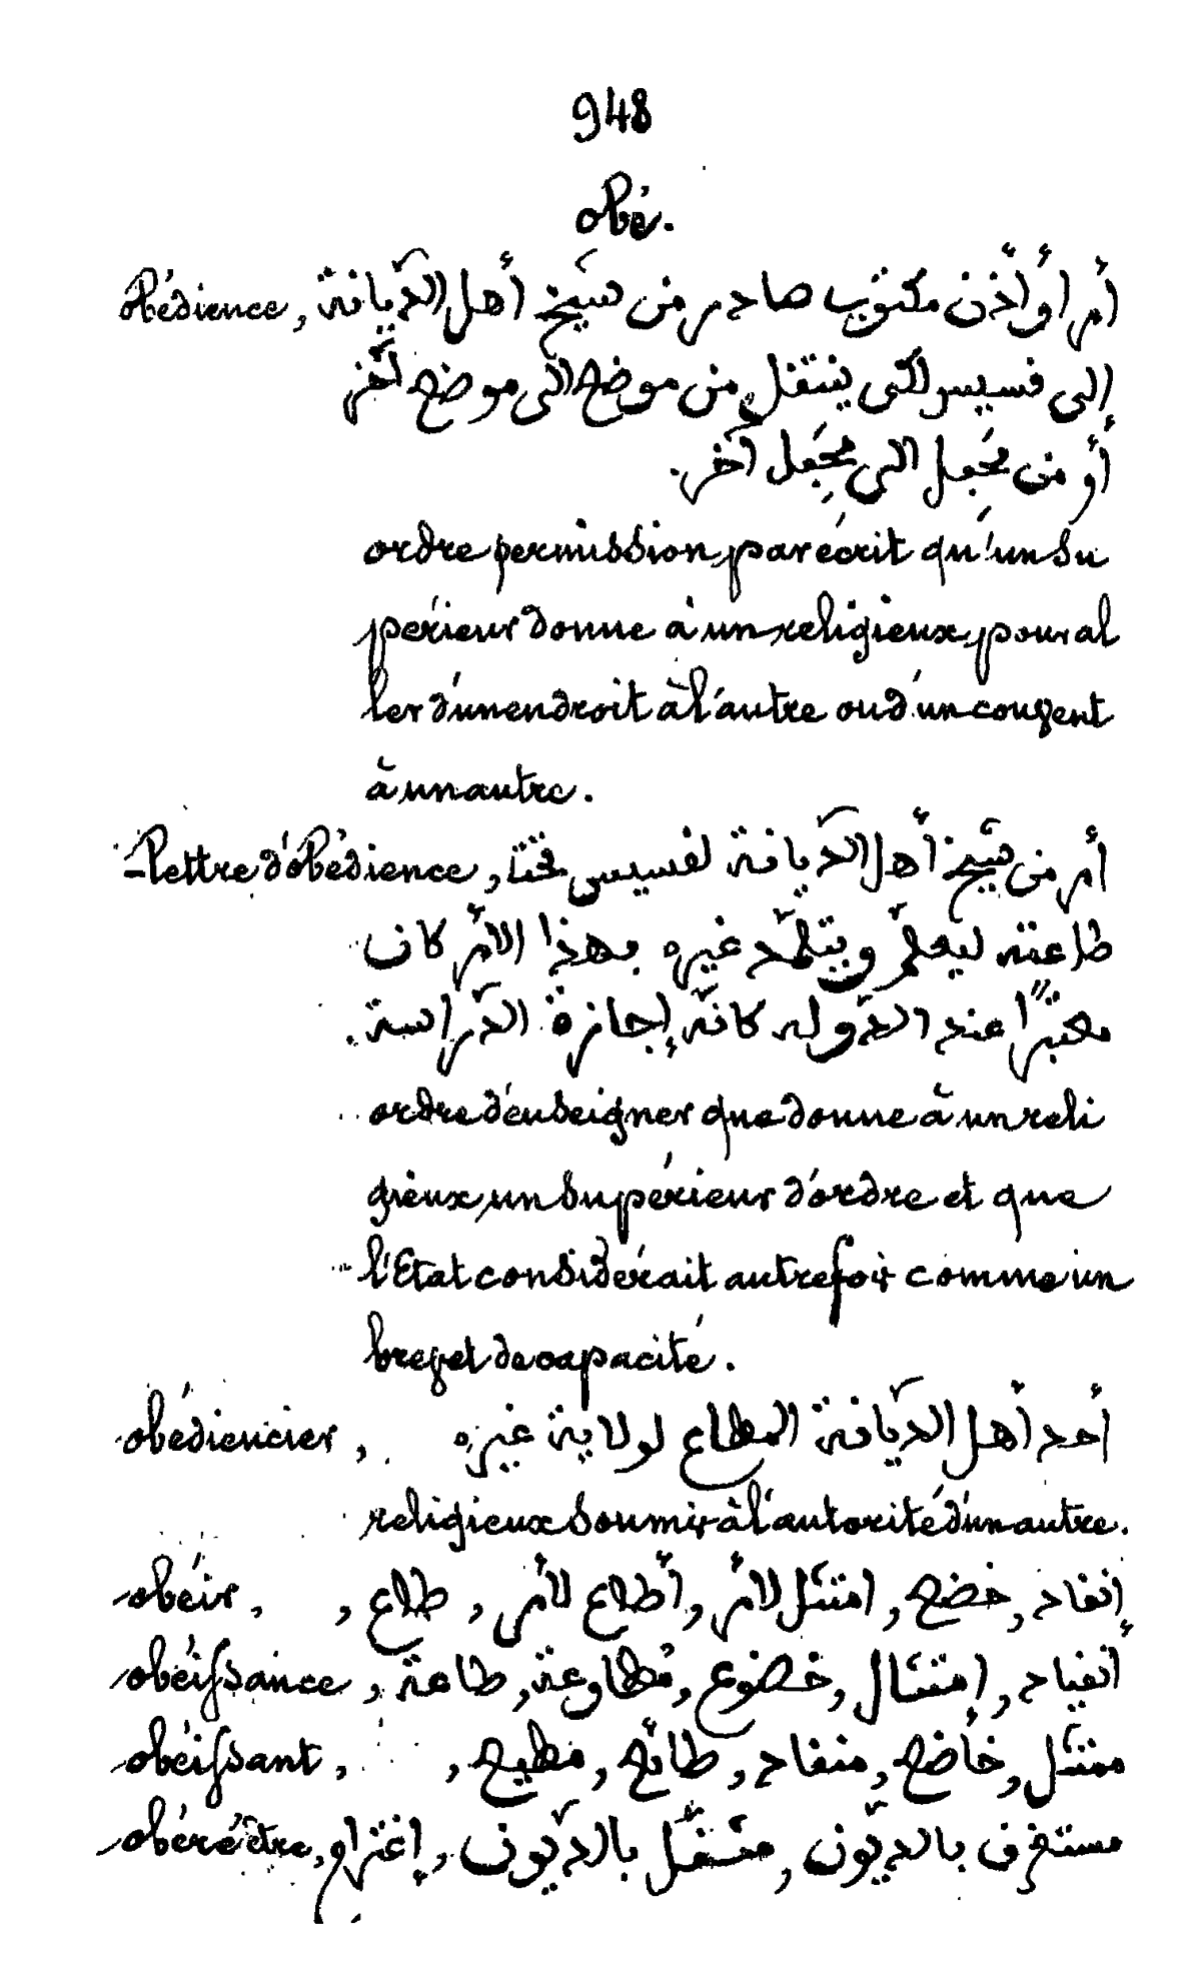 948
obé.
obédience, أمر أو إذن مكتوب صادر من شيخ أهل الدّيانة
إلى قسيس لكى ينتقل من موضع الى موضع آخر
أو من محَِل الى محَِل آخر.
ordre permission par écrit qu'un su
périeur donne à un religieux pour al
ler d'un endroit à l'autre ou d'un couvent
à un autre.
- lettre d'obédience, أمر من شيخ أهل الدّيانة لقسيس تحت
طاعته ليعلّم ويتلمّد غيره بهذا الأمر كان
معتبرًا عند الدّولة كانّه إجازة الدّراسة.
ordre d'enseigner que donne à un reli
gieux un supérieur d'ordre et que
l'Etat considérait autrefois comme un
brevet de capacité.
obédiencier, أحد أهل الدّيانة المطاع لولاية غيره
religieux soumis à l'autorité d'un autre.
obéir, إنقاد, خضع, امتثل لأمر, أطاع لأمر, طاع,
obéissance, انقياد, إمتثال, خضوع, مُطاوعة, طاعة
obéissant, ممتثل, خاضع, منقاد, طائع, مطيع,
obéré être, مستغرق بالديّون, مثقّل بالدّيون, إغترام